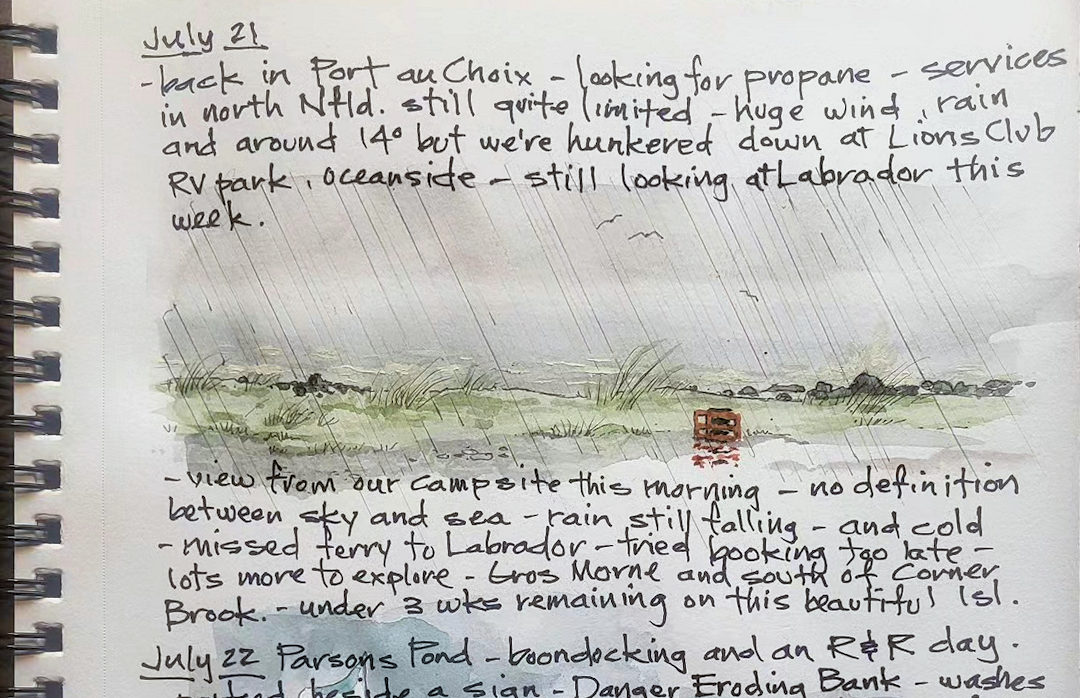 July 21
-back in Port au Choix - looking for propane - services
in north Nfld. still quite limited - huge wind, rain
and around 14° but we're hunkered down at Lions Club
RV park, oceanside - still looking at Labrador this
week.
- view from our campsite this morning - no definition
between sky and sea - rain still falling - and cold
- missed ferry to Labrador - tried booking too late -
lots more to explore - Gros Morne and south of Corner
Brook. - under 3 wks remaining on this beautiful Isl.
July 22 Parsons Pond - boondocking and an R&R day.
- parked beside a sign - Danger Eroding Bank - washes